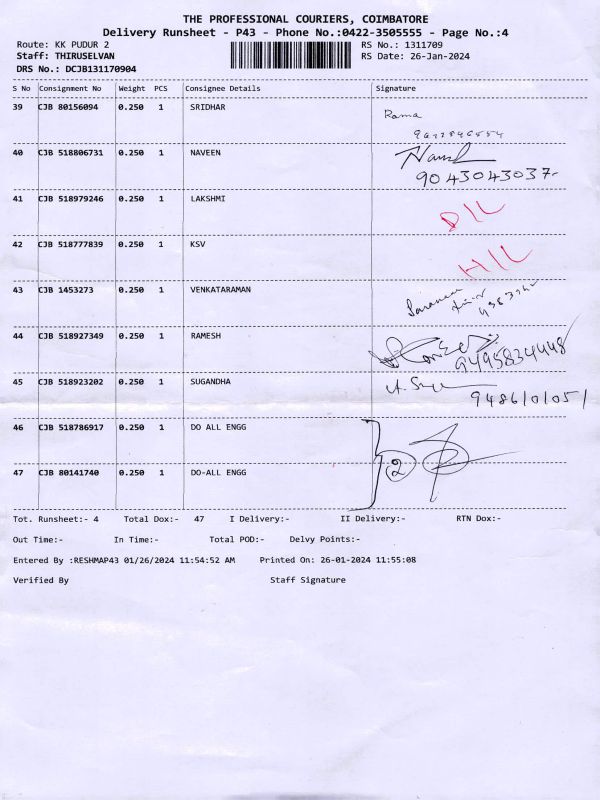 THE PROFESSIONAL COURIERS, COIMBATORE
Delivery Runsheet - P43 - Phone No.:0422-3505555 - Page No.:4
Route: KK PUDUR 2 RS No.: 1311709
Staff: THIRUSELVAN RS Date: 26-Jan-2024
DRS No.: DCJB131170904
S No Consignment No Weight PCS Consignee Details Signature
39 CJB 80156094 0.250 1 SRIDHAR
Rama
40 CJB 518806731 0.250 1 NAVEEN
9043043037-
41 CJB 518979246 0.250 1 LAKSHMI
D/L
42 CJB 518777839 0.250 1 KSV
H/L
43 CJB 1453273 0.250 1 VENKATARAMAN
44 CJB 518927349 0.250 1 RAMESH
9495834448
45 CJB 518923202 0.250 1 SUGANDHA
9486101051
46 CJB 518786917 0.250 1 DO ALL ENGG
2
47 CJB 80141740 0.250 1 DO-ALL ENGG
Tot. Runsheet:- 4 Total Dox:- 47 I Delivery:- II Delivery:- RTN Dox:-
Out Time:- In Time:- Total POD:- Delvy Points:-
Entered By :RESHMAP43 01/26/2024 11:54:52 AM Printed On: 26-01-2024 11:55:08
Verified By Staff Signature